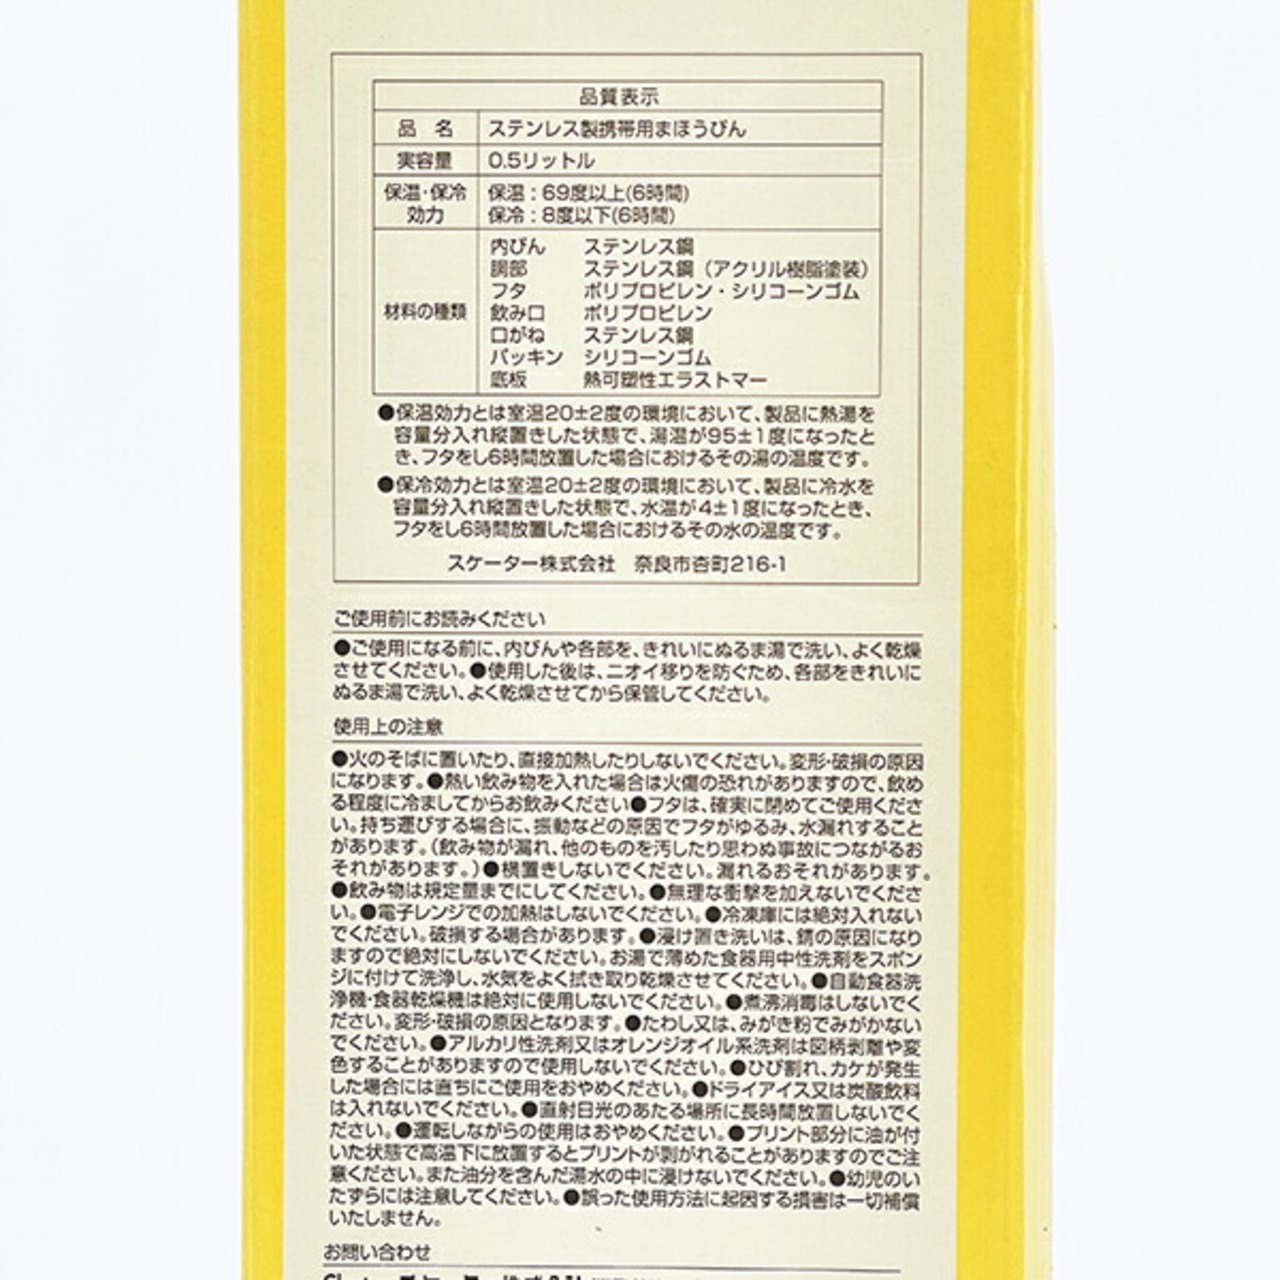 品質表示
品 名 ステンレス製携帯用まほうびん
実容量 0.5リットル
保温・保冷効力 保温：69度以上(6時間)
保冷：8度以下(6時間)
材料の種類
内びん ステンレス鋼
胴部 ステンレス鋼（アクリル樹脂塗装）
フタ ポリプロピレン・シリコーンゴム
飲み口 ポリプロピレン
口がね ステンレス鋼
パッキン シリコーンゴム
底板 熱可塑性エラストマー
●保温効力とは室温20±2度の環境において、製品に熱湯を
容量分入れ縦置きした状態で、湯温が95±1度になったと
き、フタをし6時間放置した場合におけるその湯の温度です。
●保冷効力とは室温20±2度の環境において、製品に冷水を
容量分入れ縦置きした状態で、水温が4±1度になったとき、
フタをし6時間放置した場合におけるその水の温度です。
スケーター株式会社 奈良市杏町216-1
ご使用前にお読みください
●ご使用になる前に、内びんや各部を、きれいにぬるま湯で洗い、よく乾燥
させてください。●使用した後は、ニオイ移りを防ぐため、各部をきれいに
ぬるま湯で洗い、よく乾燥させてから保管してください。
使用上の注意
●火のそばに置いたり、直接加熱したりしないでください。変形・破損の原因
になります。●熱い飲み物を入れた場合は火傷の恐れがありますので、飲め
る程度に冷ましてからお飲みください●フタは、確実に閉めてご使用くださ
い。持ち運びする場合に、振動などの原因でフタがゆるみ、水漏れすること
があります。(飲み物が漏れ、他のものを汚したり思わぬ事故につながるお
それがあります。)●横置きしないでください。漏れるおそれがあります。
●飲み物は規定量までにしてください。●無理な衝撃を加えないでくださ
い。●電子レンジでの加熱はしないでください。●冷凍庫には絶対入れない
でください。破損する場合があります。●浸け置き洗いは、錆の原因になり
ますので絶対にしないでください。お湯で薄めた食器用中性洗剤をスポン
ジに付けて洗浄し、水気をよく拭き取り乾燥させてください。●自動食器洗
浄機・食器乾燥機は絶対に使用しないでください。●煮沸消毒はしないでく
ださい。変形・破損の原因となります。●たわし又は、みがき粉でみがかない
でください。●アルカリ性洗剤又はオレンジオイル系洗剤は図柄剥離や変
色することがありますので使用しないでください。●ひび割れ、カケが発生
した場合には直ちにご使用をおやめください。●ドライアイス又は炭酸飲料
は入れないでください。●直射日光のあたる場所に長時間放置しないでく
ださい。●運転しながらの使用はおやめください。●プリント部分に油が付
いた状態で高温下に放置するとプリントが剥がれることがありますのでご注
意ください。また油分を含んだ湯水の中に浸けないでください。●幼児のい
たずらには注意してください。●誤った使用方法に起因する損害は一切補償
いたしません。
お問い合わせ